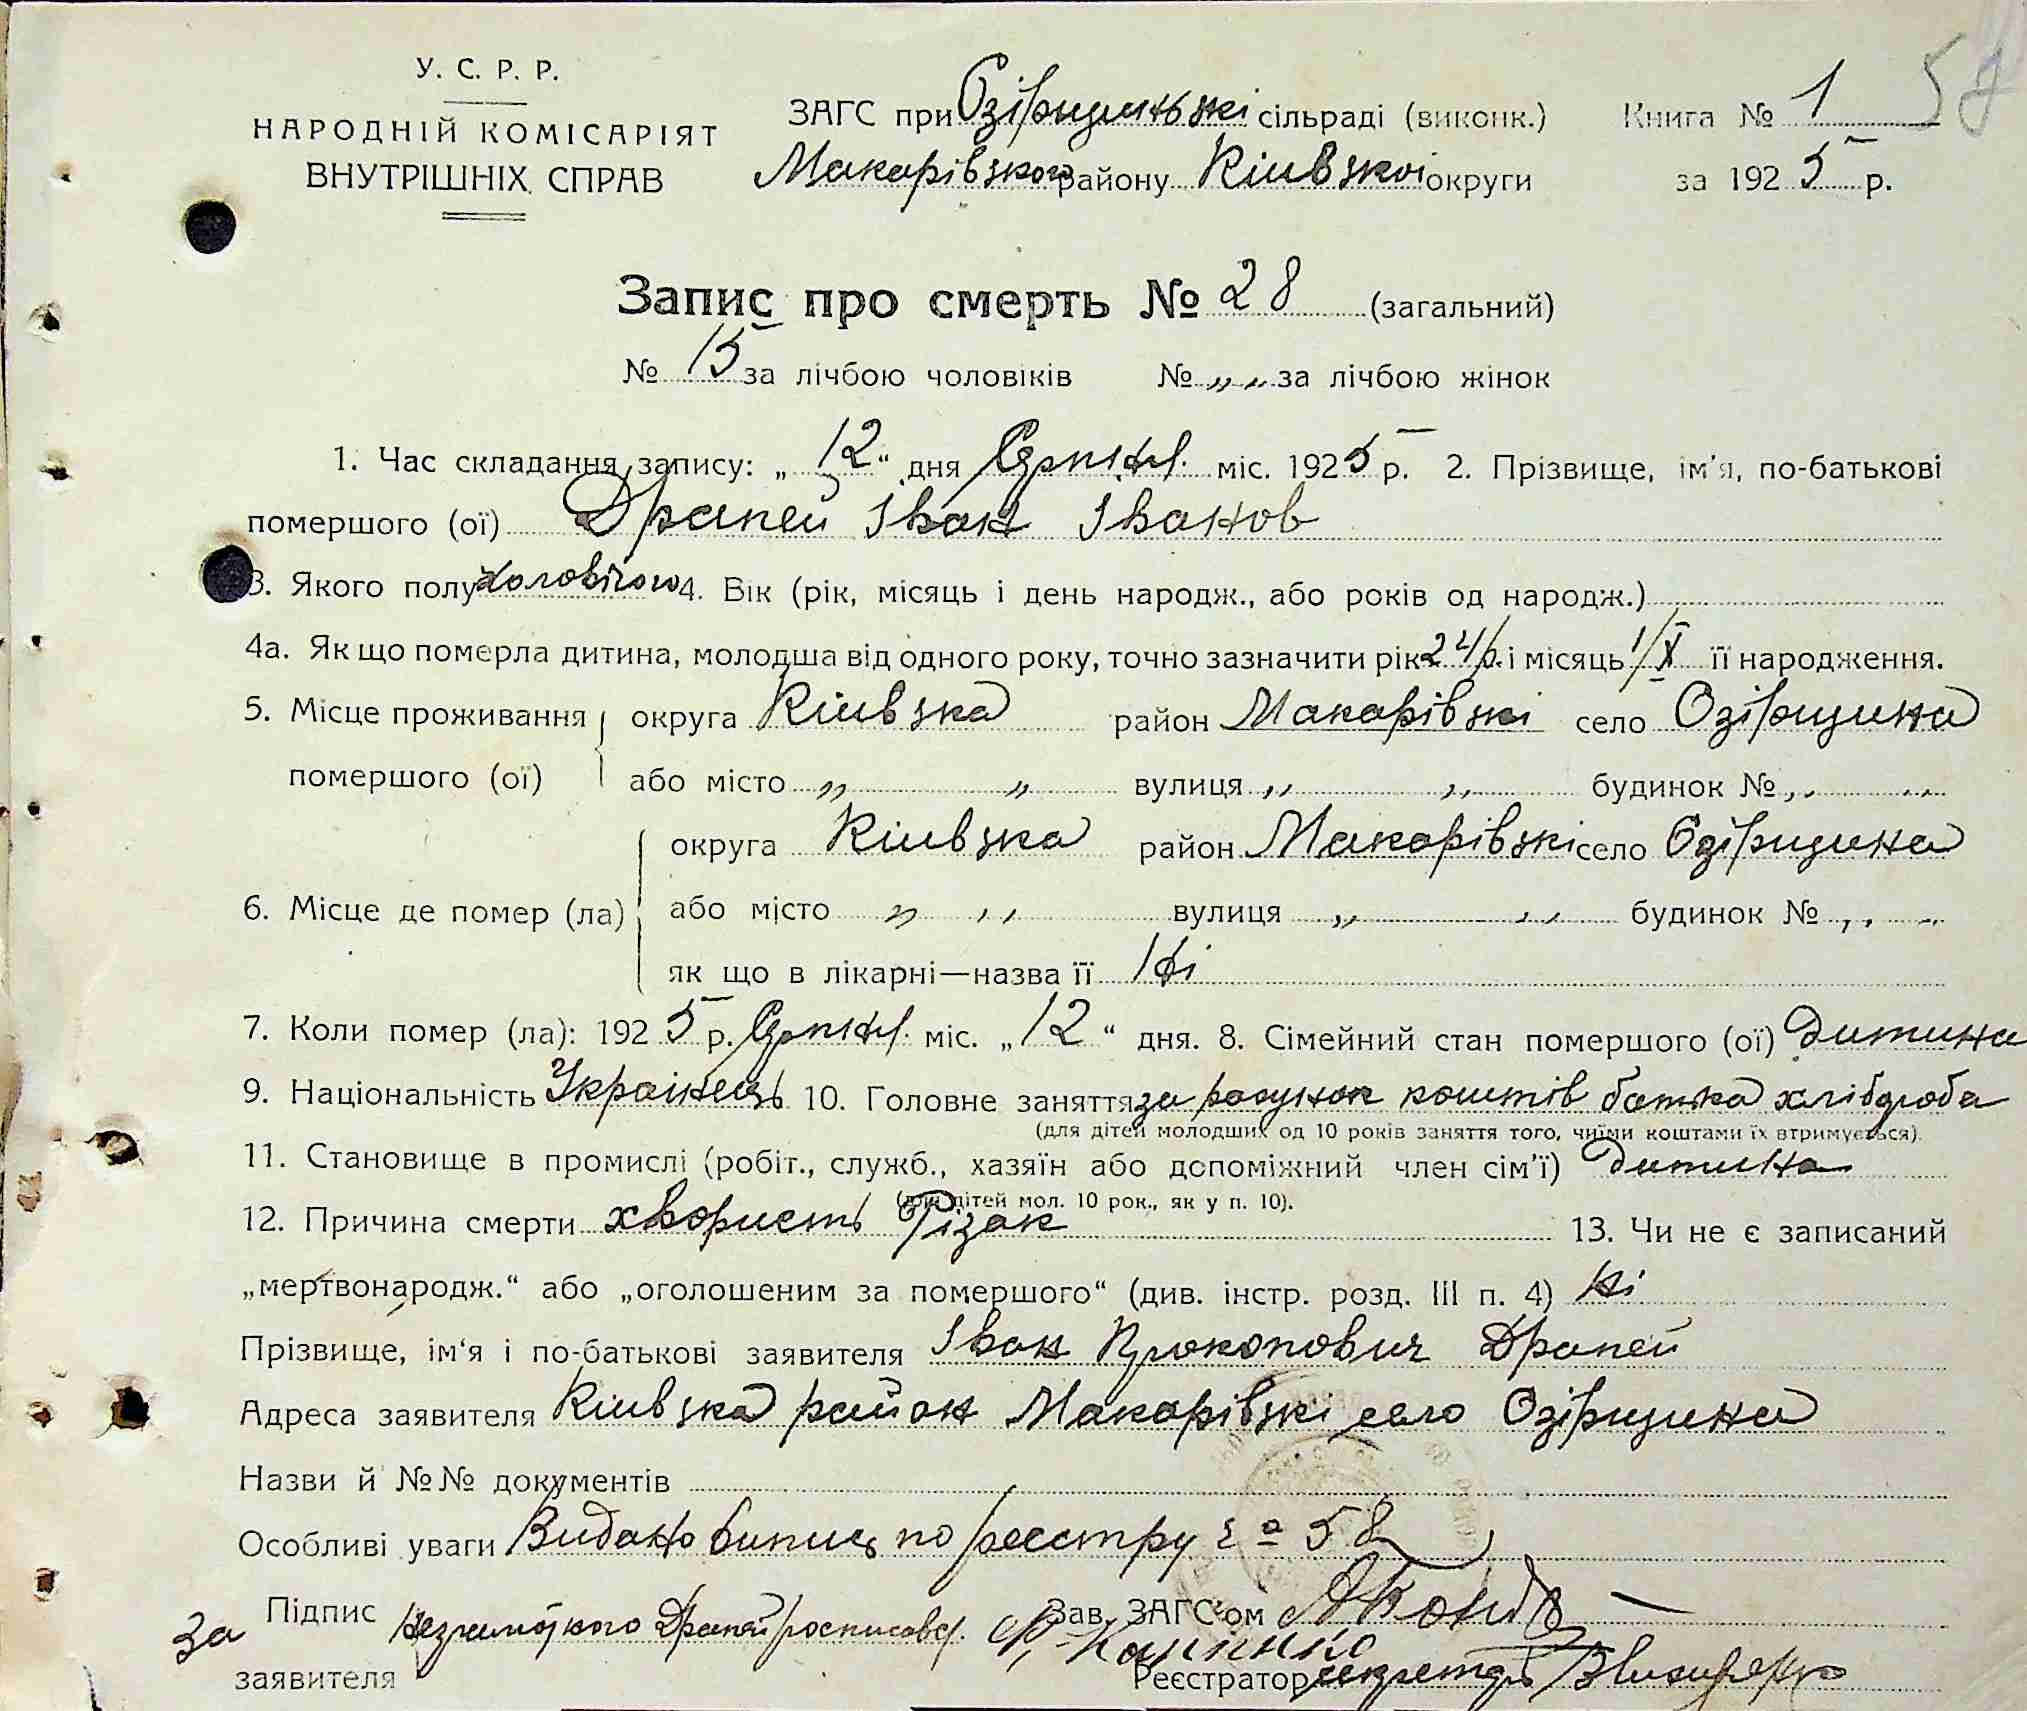 У. С. Р. Р.
НАРОДНІЙ КОМІСАРІЯТ
ВНУТРІШНІХ СПРАВ
ЗАГС при Озірщинські сільраді (виконк.)
Макарівзкого району Кіивзкоі округи
Книга № 1
57
за 1925 р.
Запис про смерть № 28 (загальний)
№ 15 за лічбою чоловіків № „ „ за лічбою жінок
1. Час складання запису: „12“ дня Серпня міс. 1925 р. 2. Прізвище, ім'я, по-батькові
помершого (ої) Драпей Іван Іванов
3. Якого полу чоловічого 4. Вік (рік, місяць і день народж., або років од народж.)
4а. Як що померла дитина, молодша від одного року, точно зазначити рік 24 р. і місяць 1/X її народження.
5. Місце проживання округа Кіивзка район Макарівзкі село Озірщина
помершого (ої) або місто „ „ вулиця „ „ будинок № „ „
округа Кіивзка район Макарівзкі село Озірщина
6. Місце де помер (ла) або місто „ „ вулиця „ „ будинок № „ „
як що в лікарні—назва її Ні
7. Коли помер (ла): 1925 р. Серпня міс. „12“ дня. 8. Сімейний стан помершого (ої) дитина
9. Національність Украінець 10. Головне заняття за рахунок коштів батька хлібороба
(для дітей молодших од 10 років заняття того, чиїми коштами їх втримується).
11. Становище в промислі (робіт., служб., хазяїн або допоміжний член сім'ї) дитина
(для дітей мол. 10 рок., як у п. 10).
12. Причина смерти хвористь Різак 13. Чи не є записаний
„мертвонародж.“ або „оголошеним за помершого“ (див. інстр. розд. III п. 4) Ні
Прізвище, ім'я і по-батькові заявителя Іван Прокопович Драпей
Адреса заявителя Кіивзка район Макарівзкі село Озірщина
Назви й №№ документів
Особливі уваги Видано випись по реестру 58
Підпис За неграмотного Драпей росписовся
заявителя
Зав. ЗАГС'ом
Реєстратор секретарь